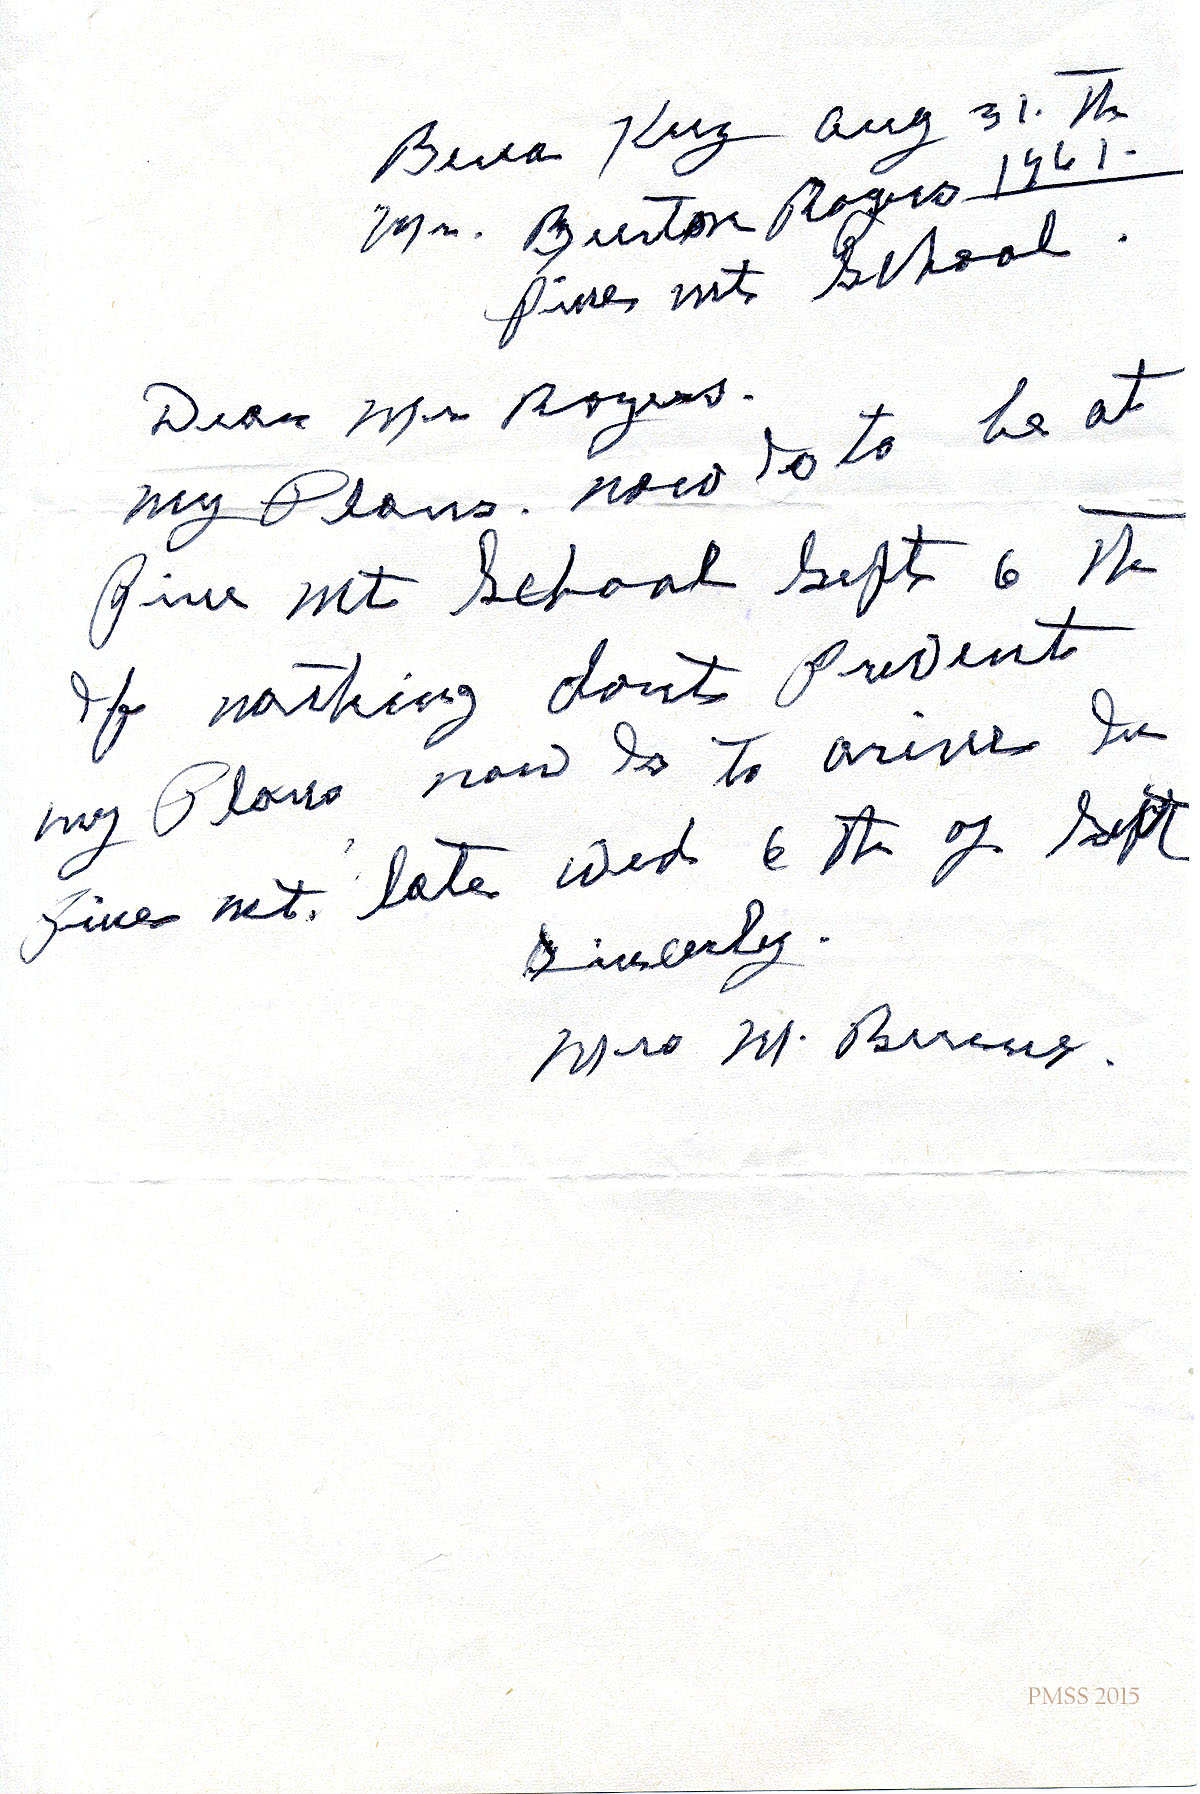 Berea Ky Aug 31. Th
Mr. Burton Rogers 1961.
Pine Mt School.
Dear Mr Rogers.
my Plans. now Is to be at
Pine Mt School Sept 6 Th
If nothing dont Prevent
my Plans now Is to arive In
Pine Mt. late Wed 6 Th of Sept
Sincerly.
Mrs M.
PMSS 2015